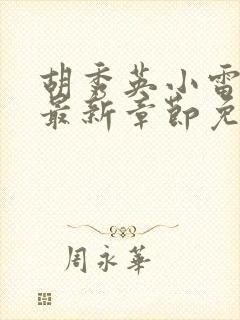 胡秀英小雷
最新章节免
周永華